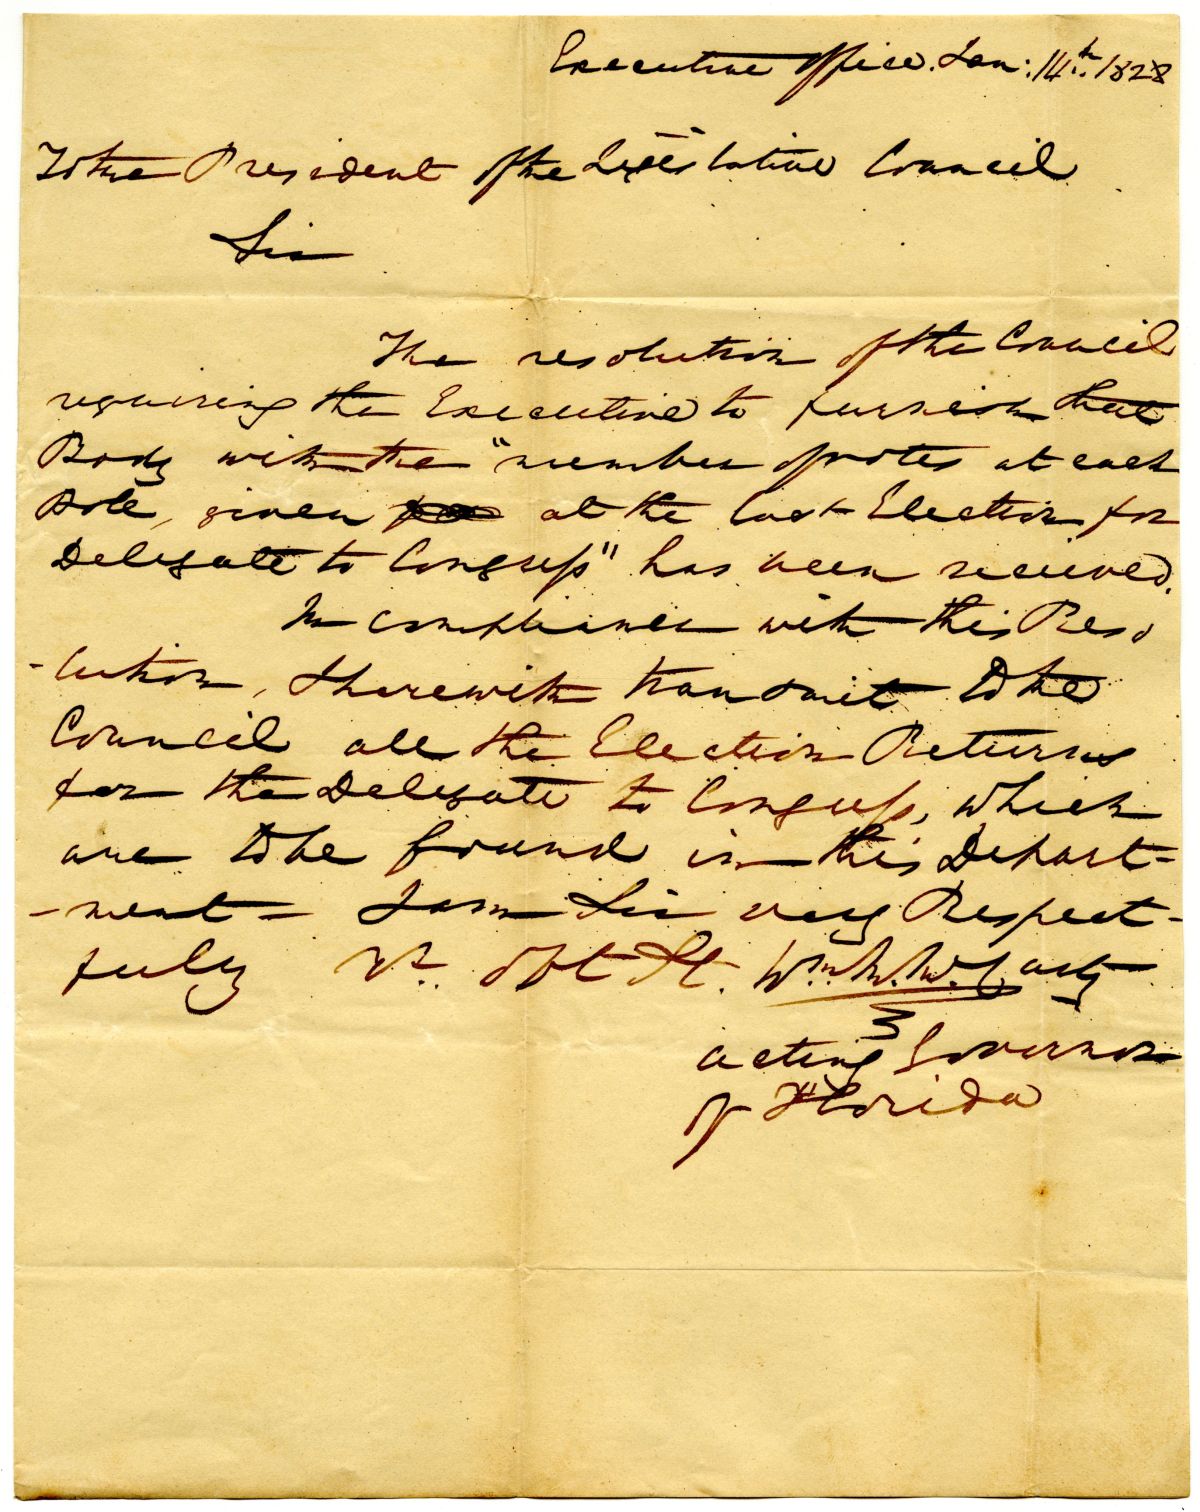 Executive office. Jan: 14th. 1828
To the President of the Legislative Council
Sir
The resolution of the Council
requiring the Executive to furnish that
Body with the "number of votes at each
Pole, given at the last Election for
Delegate to Congress" has been received.
In compliance with this Reso
-lution, I herewith transmit to the
Council all the Election Returns
for the Delegate to Congress, which
are to be found in this Depart-
-ment - I am Sir very Respect-
fully Yr. Obt St. Wm. M. McCarty
acting Governor
of Florida